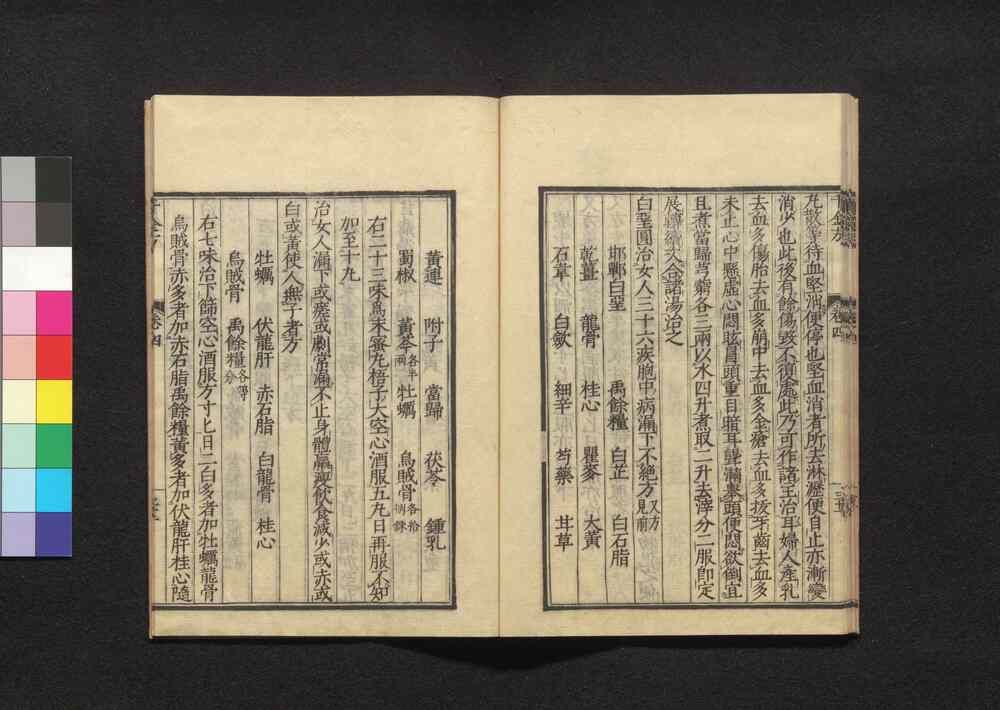 丸散等待血堅消便停也堅血消者所去淋瀝便自止亦漸變
消少也此後有餘傷毀不復處此乃可作諸主治耳婦人產乳
去血多傷胎去血多崩中去血多金瘡去血多拔牙齒去血多
未止心中懸虛心悶眩冒頭重目暗耳聾滿舉頭便悶欲倒宜
且煮當歸芎藭各三兩以水四升煮取二升去滓分二服即定
展轉續次合諸湯治之
白堊圓治女人三十六疾胞中病漏下不絕方又方見前
邯鄲白堊 禹餘糧 白芷 白石脂
乾薑 龍骨 桂心 瞿麥 大黃
石韋 白歛 細辛 芍藥 茸草
黃連 附子 當歸 茯苓 鍾乳
蜀椒 黃芩各半兩 牡蠣 烏賊骨各拾捌銖
右二十三味爲末蜜丸梧子大空心酒服五丸日再服不知
加至十丸
治女人漏下或瘥或劇常漏不止身體羸瘦飲食減少或赤或
白或黃使人無子者方
牡蠣 伏龍肝 赤石脂 白龍骨 桂心
烏賊骨 禹餘糧各等分
右七味治下篩空心酒服方寸匕日二白多者加牡蠣龍骨
烏賊骨赤多者加赤石脂禹餘糧黃多者加伏龍肝桂心隨
卷四